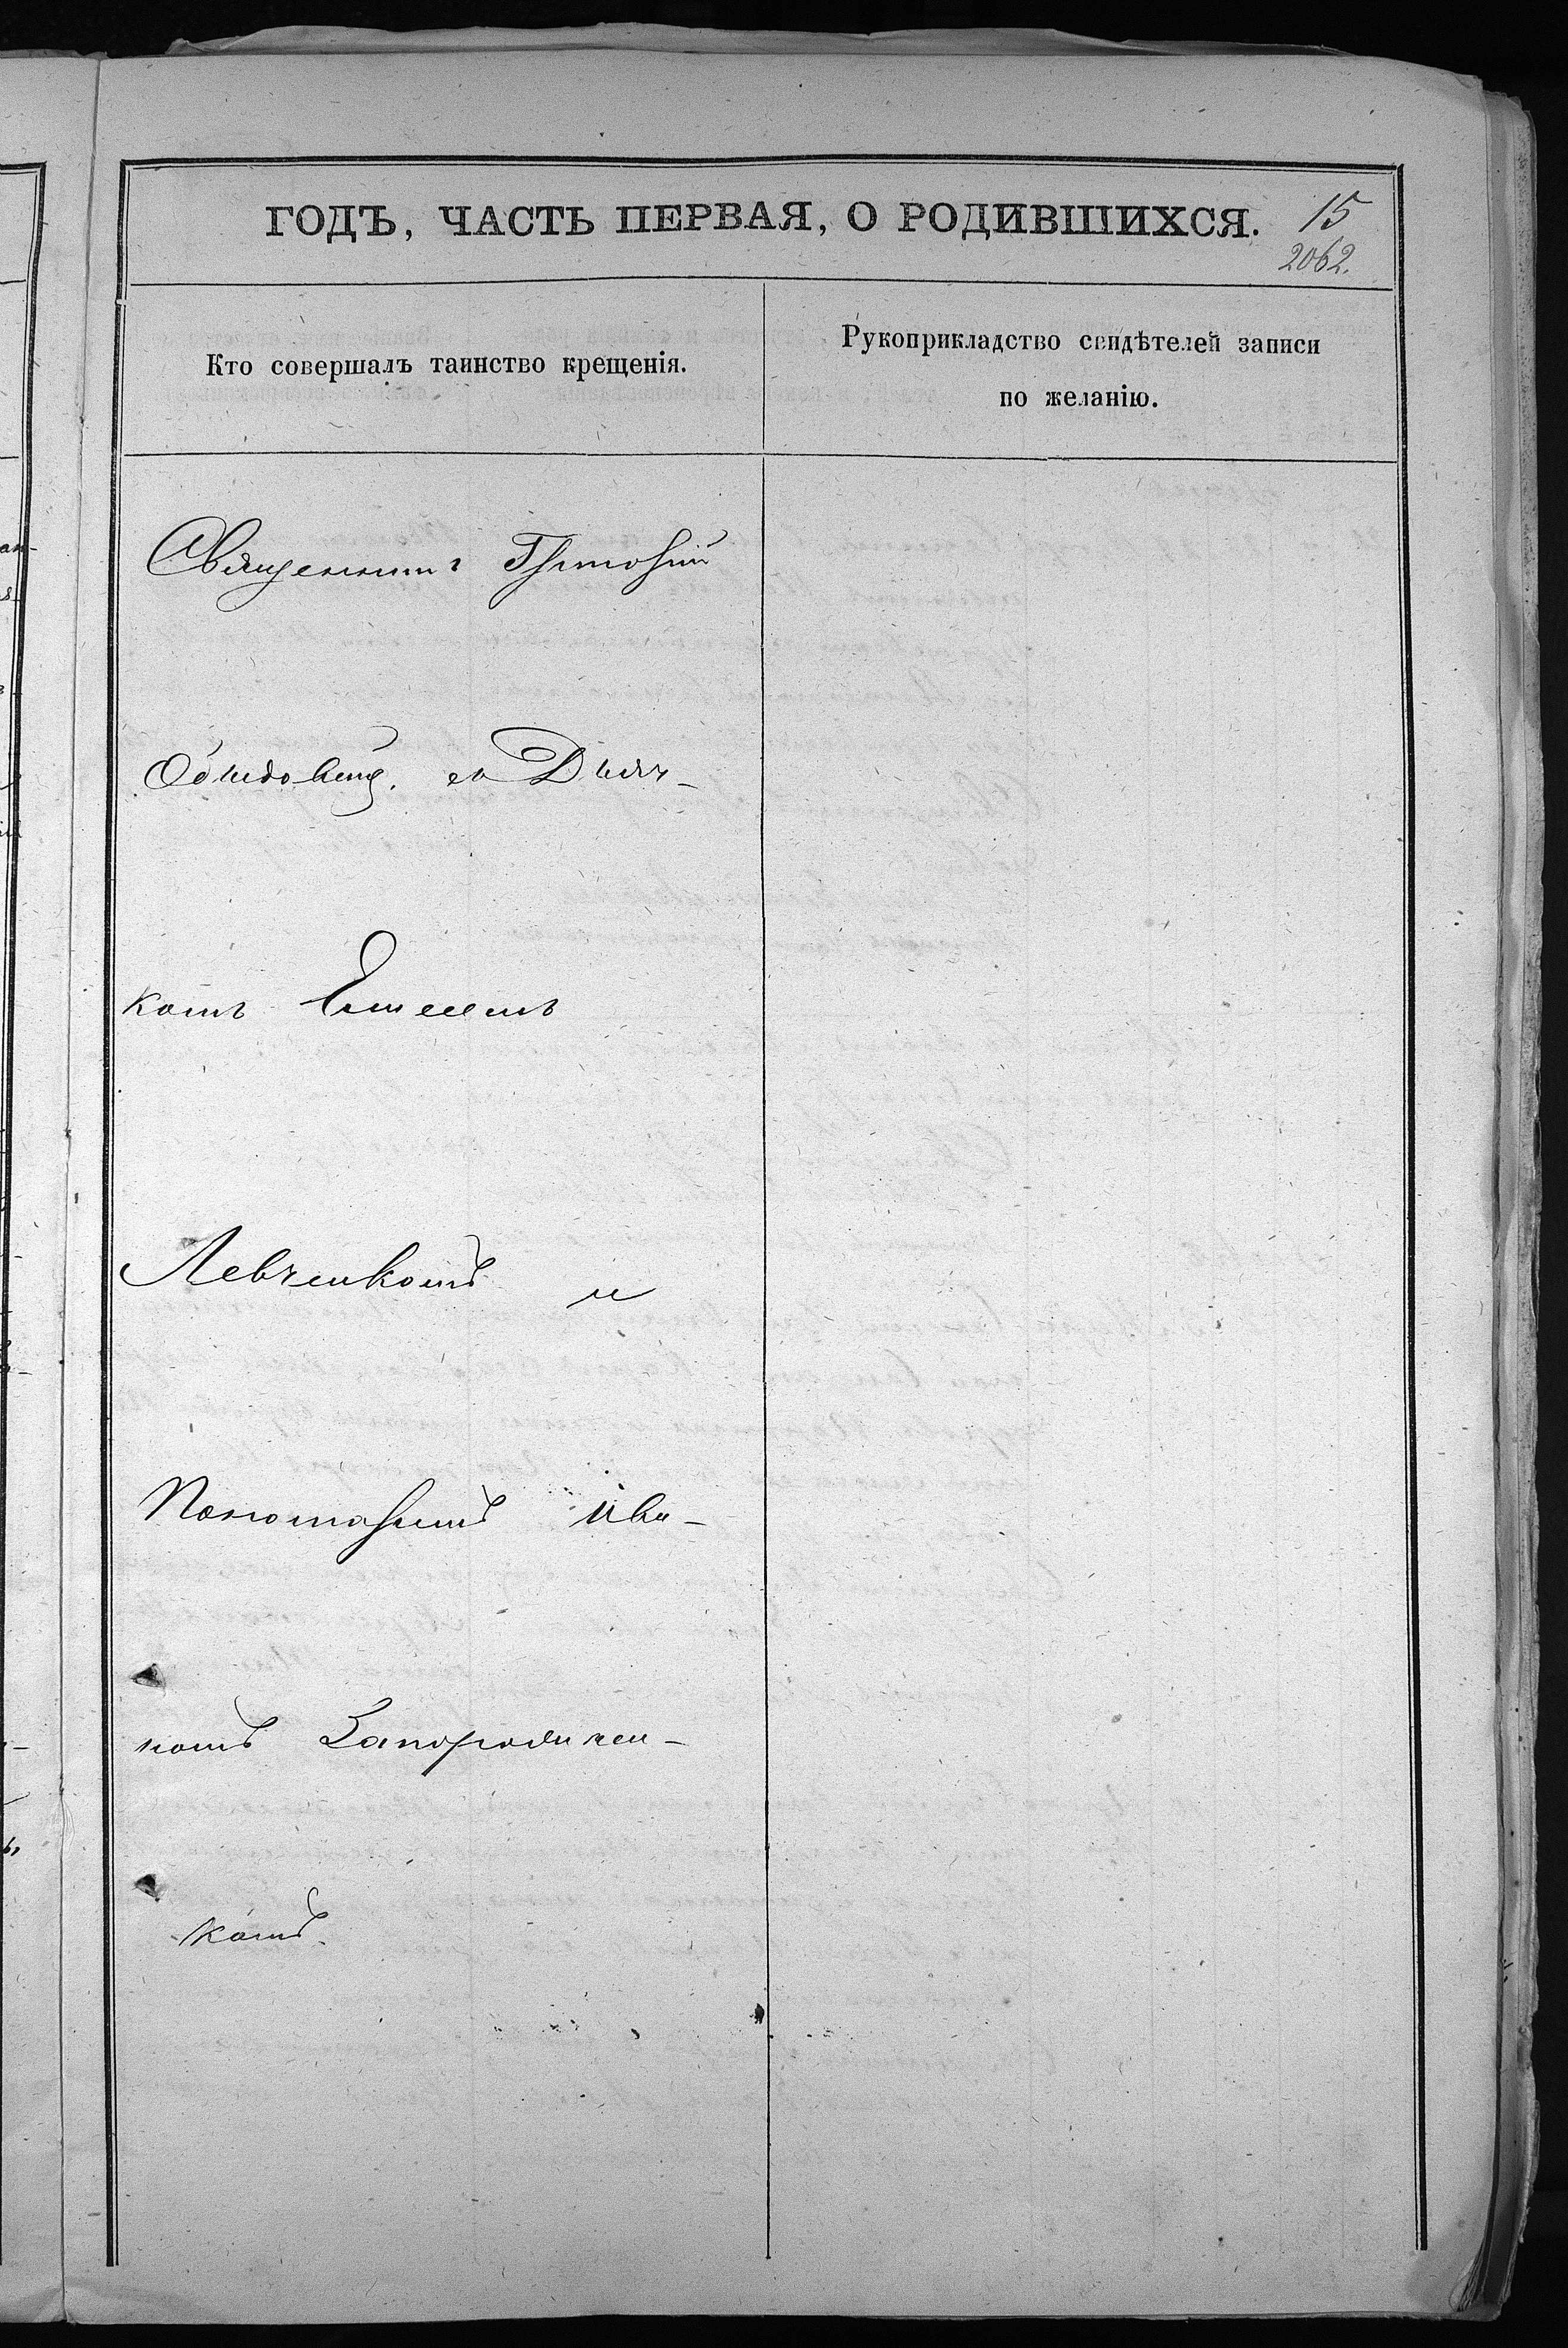 ГОДЪ, ЧАСТЬ ПЕРВАЯ, О РОДИВШИХСЯ.
15
2062.
Кто совершалъ таинство крещенія.
Рукоприкладство свидѣтелей записи
по желанію.
Священникъ Григорій
съ Дьяч-
комъ
Левченкомъ и
Пономаремъ Ива-
номъ Запорожчен-
комъ.